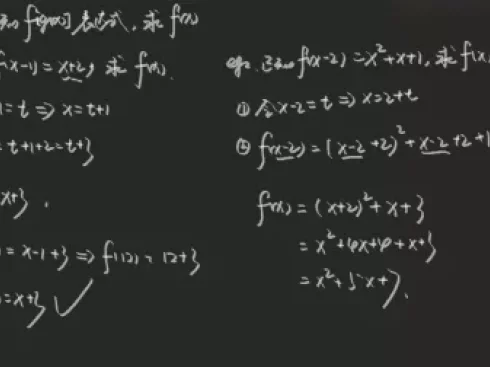 知f[g(x)]表达式，求f(x)
f(x-1)=x+2，求f(x).
=t⇒x=t+1
=t+1+2=t+3
x+3.
=x-1+3⇒f(12)=12+3
=x+3✓
eg2.已知f(x-2)=x²+x+1,求f(x
①令x-2=t⇒x=2+t
②f(x-2)=(x-2+2)²+x-2+2+1
f(x)=(x+2)²+x+3
=x²+4x+4+x+3
=x²+5x+7.